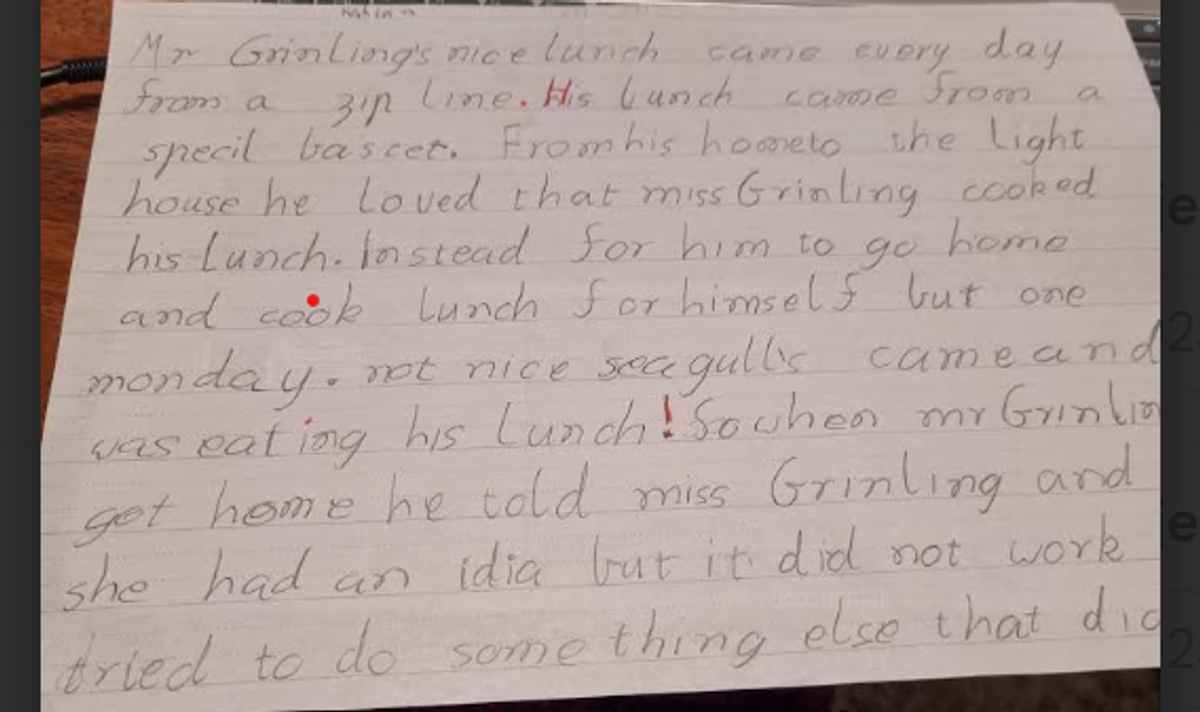 Mr Grinling's nice lunch came every day
from a zip line. His lunch came from a
specil bascet. From his hometo the light
house he loved that miss Grinling cooked
his lunch. Instead for him to go home
and cook lunch for himself but one
monday. not nice seagulls came and
was eating his lunch! So when mr Grinlin
got home he told miss Grinling and
she had an idia but it did not work
tried to do something else that did